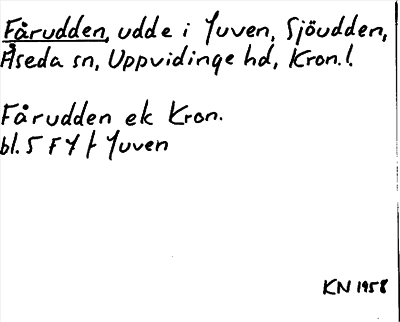 Fårudden, udde i Juven, Sjöudden,
Åseda sn, Uppvidinge hd, Kron. l.
Fårudden ek Kron.
bl. 5 F Y f Juven
KN 1958